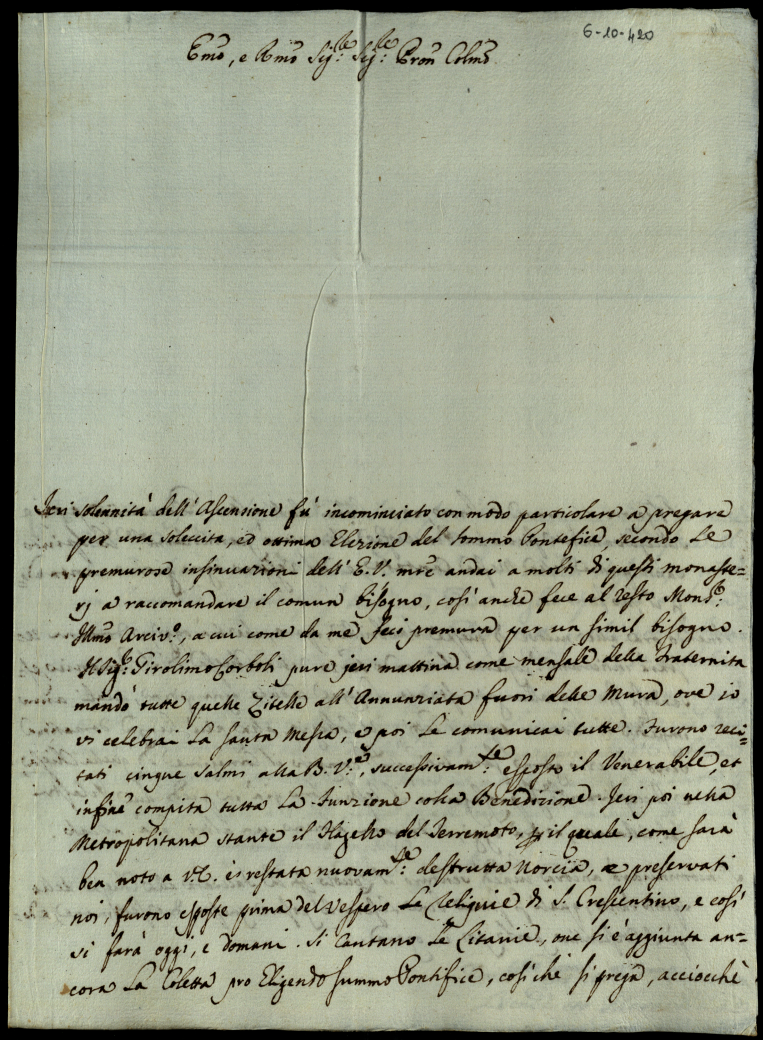 6-10-420
Emo, e Rmo Sig.re Sig.re Pron Colmo
Jeri solennità dell'Ascensione fù incominciato con modo particolare a pregare
per una sollecita, ed ottima Elezione del sommo Pontefice, secondo le
premurose insinuazioni dell'E.V. mre andai a molti di questi monaste=
rj a raccomandare il comun bisogno, così anche fece al resto Mons.r:
Illmo Arciv.o, a cui come da me feci premura per un simil bisogno.
Il Sig.r Girolimo Corboli pure jeri mattina come mensale della Fraternita
mandò tutte quelle Zitelle all'Annunziata fuori delle Mura, ove io
vi celebrai la santa Messa, e poi le comunicai tutte. Furono reci=
tati cinque salmi alla B. V.e, successivam.te: esposto il Venerabile, et
infine compita tutta la Funzione colla Benedizione. Jeri poi nella
Metropolitana stante il Flagello del Terremoto, p il quale, come sarà
ben noto a VE. è restata nuovam.te: destrutta Norcia, e preservati
noi, furono esposte prima del Vespero le Reliquie di S. Crescentino, e così
si farà oggi, e domani. Si Cantano le Litanie, ove si è aggiunta an=
cora la Coletta pro Eligendo summo Pontifice, così che si prega, acciocchè